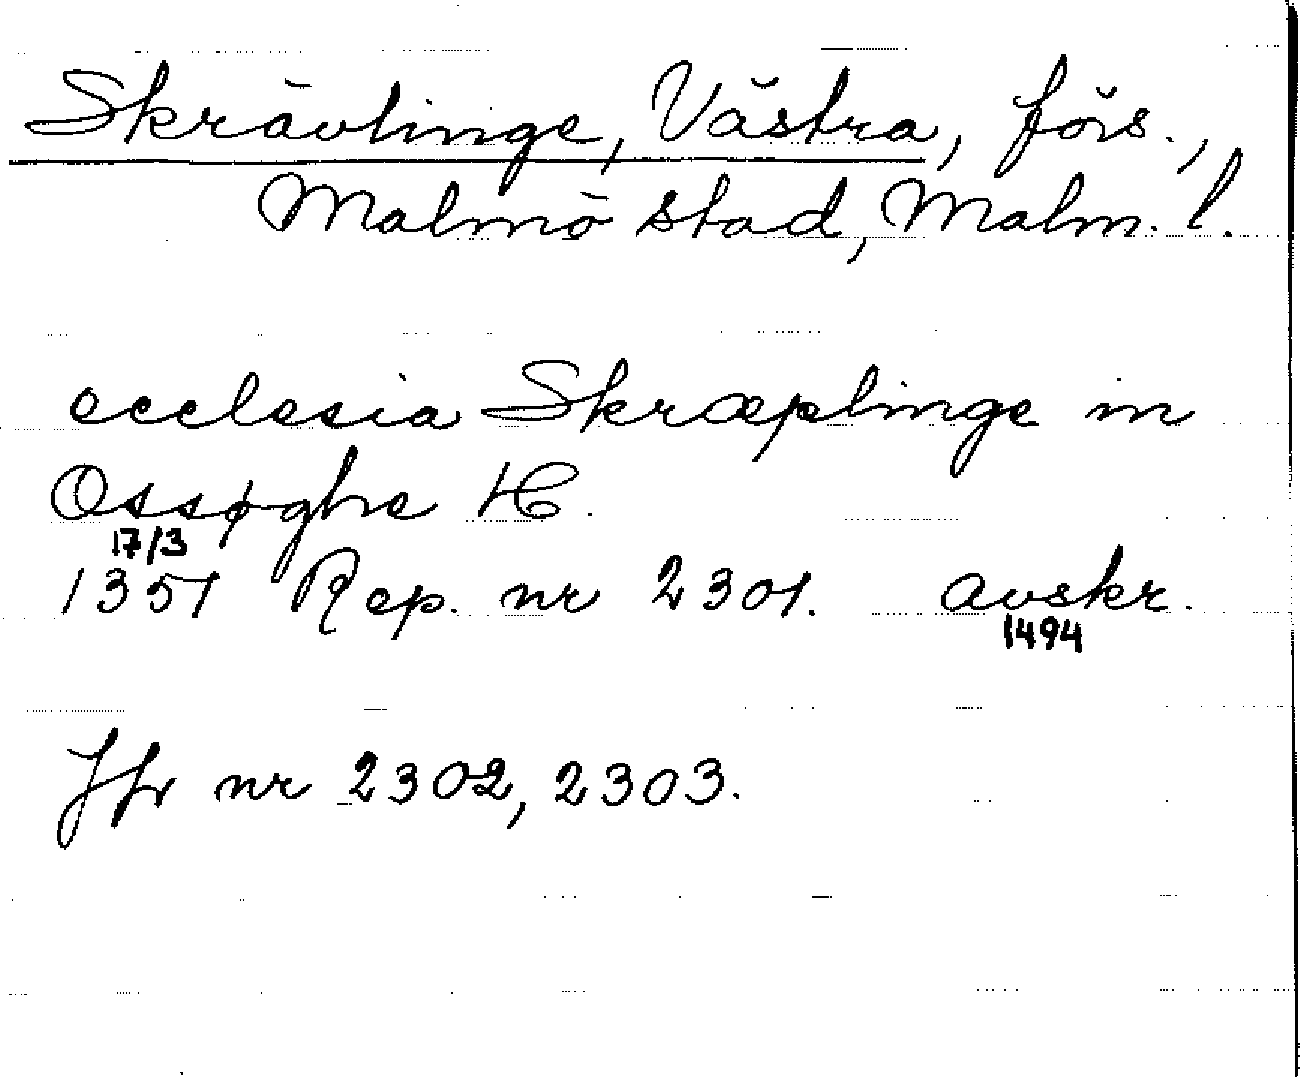 Skrävlinge, Västra, förs.,
Malmö stad, Malm. l.
ecclesia Skræplinge in
Ossøghe H.
17/3
1351 Rep. nr 2301. avskr.
1494
Jfr nr 2302, 2303.